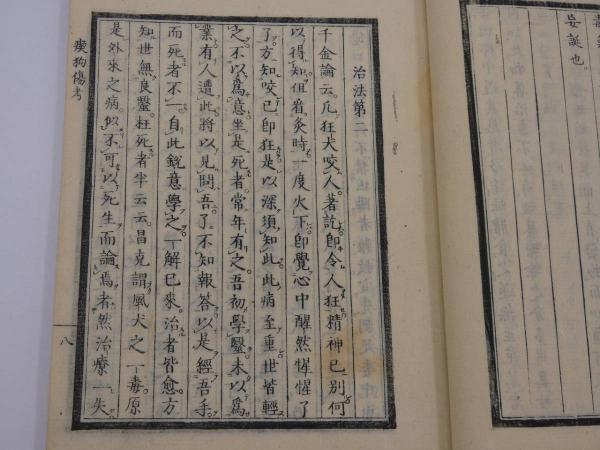 妄誕也
治法第二
千金論云凡狂犬咬人著訖即令人狂精神已別何
以得知但看灸時一度火下即覺心中醒然惺惺了
了方知咬已即狂是以深須知此此病至重世皆輕
之不以爲意坐是死者常年有之吾初學醫未以爲
業有人遭此將以見問吾了不知報答以是經吾手
而死者不一自此銳意學之一解已來治者皆愈方
知世無良醫枉死者半云云昌克謂風犬之一毒原
是外來之病似不可以死生而論焉者然治療一失
瘈狗傷考
八